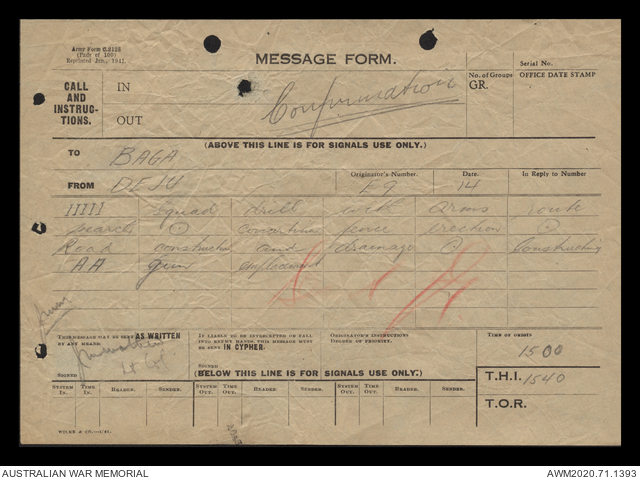 Army Form C.2128
(Pads of 100)
Reprinted Jan., 1941.
MESSAGE FORM.
Serial No.
CALL AND INSTRUCTIONS.
IN
OUT
Confirmation
No. of Groups
GR.
OFFICE DATE STAMP
(ABOVE THIS LINE IS FOR SIGNALS USE ONLY.)
TO BAGA
FROM DEJU
Originator's Number. E9
Date. 14
In Reply to Number.
IIIII Squad drill with Arms route
march ⊙ Concertina fence erection ⊙
Road construction and drainage ⊙ Constructing
AA gun emplacement
THIS MESSAGE MAY BE SENT AS WRITTEN
BY ANY MEANS.
SIGNED
Lt Col
IF LIABLE TO BE INTERCEPTED OR FALL
INTO ENEMY HANDS THIS MESSAGE MUST
BE SENT IN CYPHER.
SIGNED
ORIGINATOR'S INSTRUCTIONS
DEGREE OF PRIORITY.
TIME OF ORIGIN
1500
T.H.I. 1540
T.O.R.
(BELOW THIS LINE IS FOR SIGNALS USE ONLY.)
SYSTEM IN. TIME IN. READER. SENDER. SYSTEM OUT. TIME OUT. READER. SENDER. SYSTEM OUT. TIME OUT. READER. SENDER.
AUSTRALIAN WAR MEMORIAL
AWM2020.71.1393